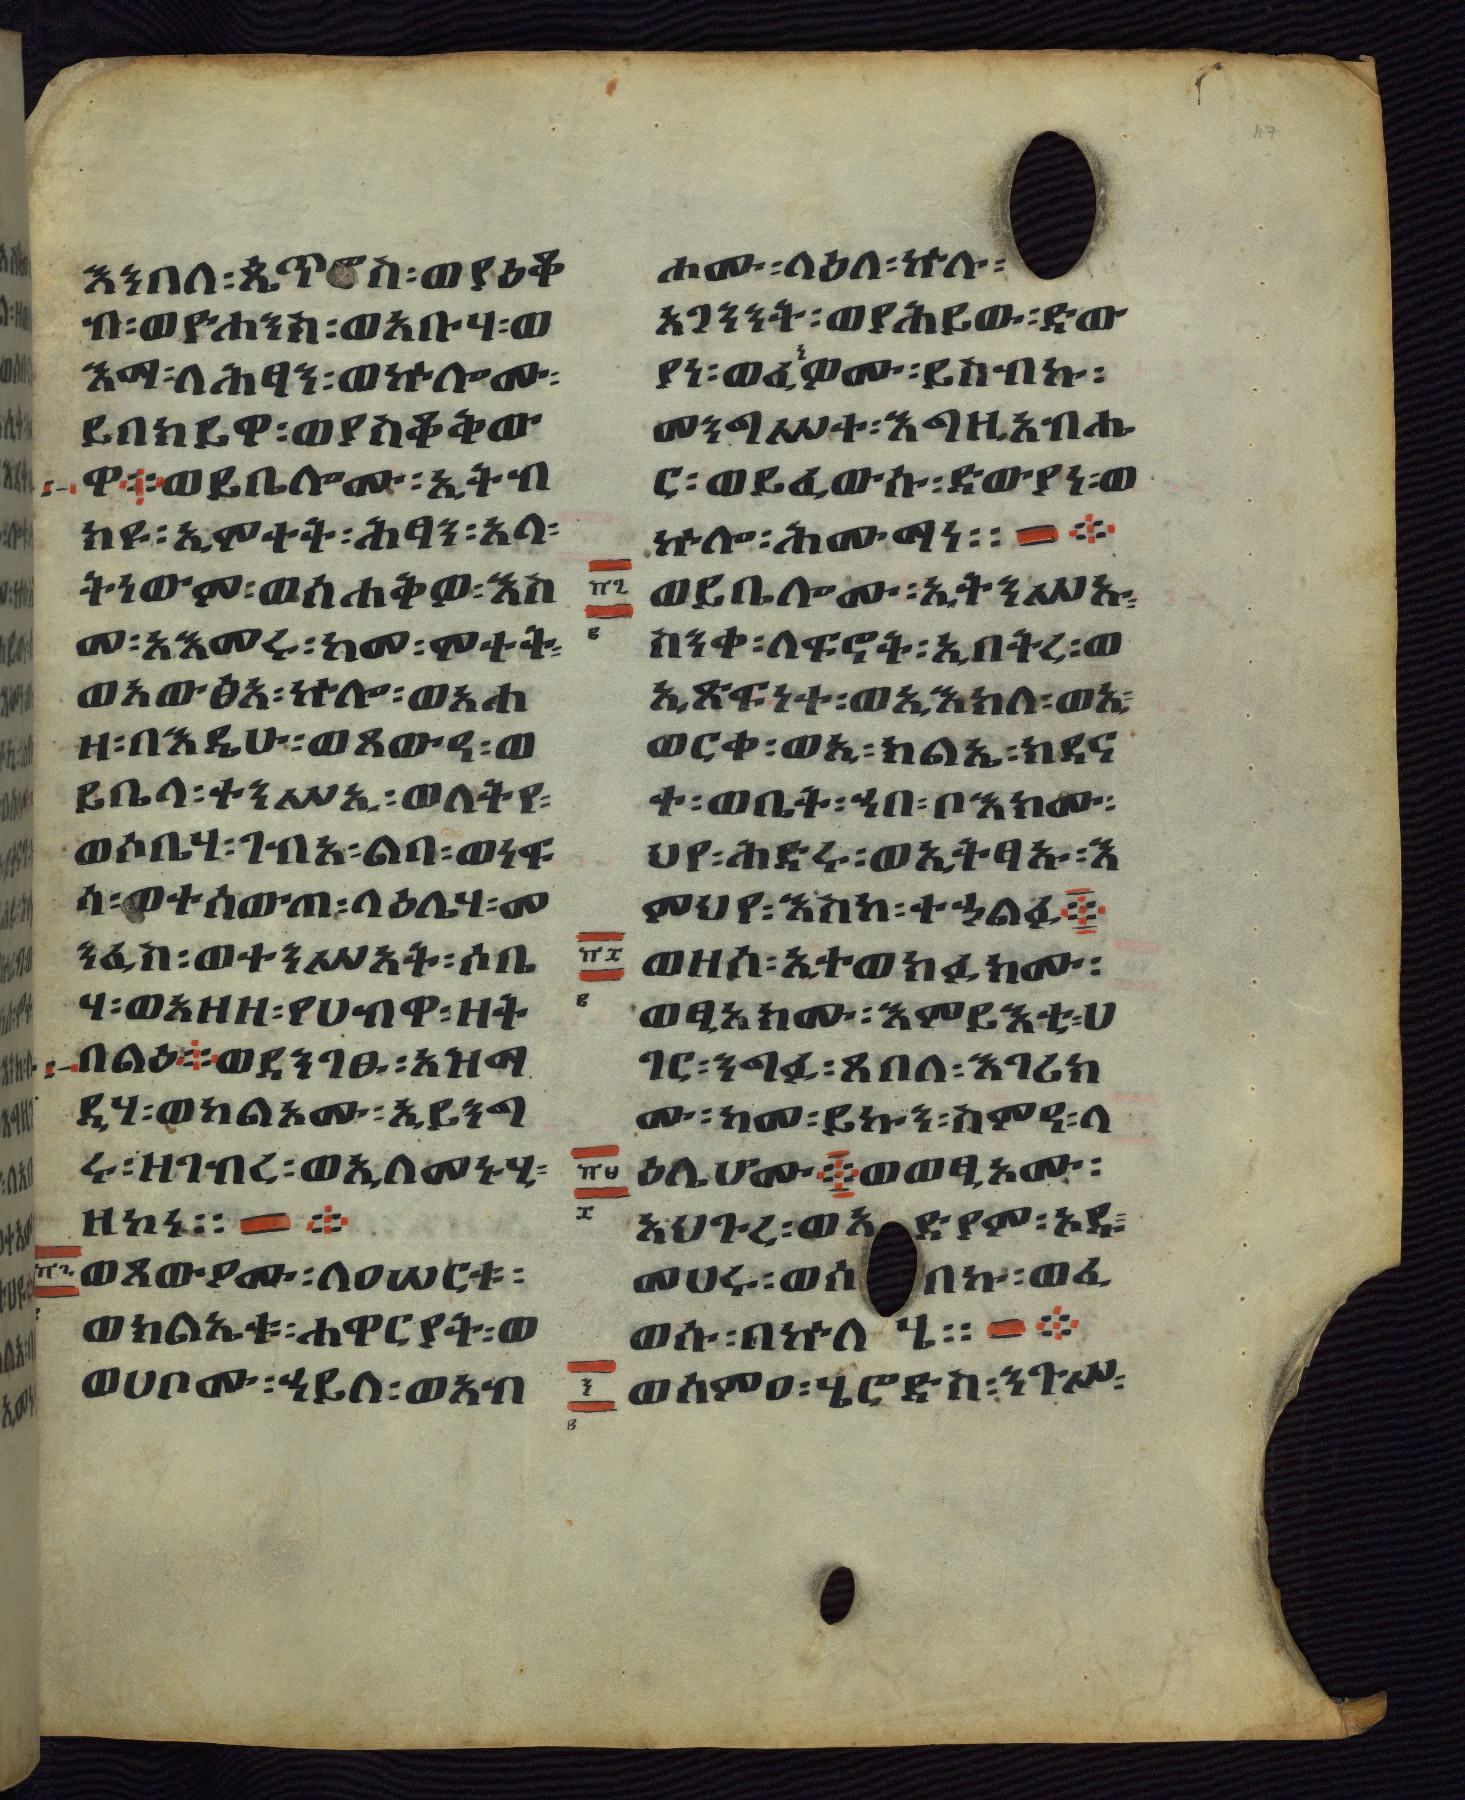 እንበለ፡ጴጥሮስ፡ወያዕቆ
ብ፡ወዮሐንስ፡ወአቡሃ፡ወ
እማ፡ለሕፃን፡ወኵሎሙ፡
ይበክይዋ፡ወያስቆቅው
ዋ፡ወይቤሎሙ፡ኢትብ
ክዩ፡ኢሞተት፡ሕፃን፡አላ፡
ትነውም፡ወሰሐቅዎ፡እስ
መ፡አእመሩ፡ከመ፡ሞተት፡
ወአውፅአ፡ኵሎ፡ወአሐ
ዘ፡በእዴሁ፡ወጸውዓ፡ወ
ይቤላ፡ተንሥኢ፡ወለትየ፡
ወሶቤሃ፡ገብአ፡ልባ፡ወነፍ
ሳ፡ወተሰውጠ፡ላዕሌሃ፡መ
ንፈስ፡ወተንሥአት፡ሶቤ
ሃ፡ወአዘዘ፡የሀብዋ፡ዘት
በልዕ፡ወደንገፁ፡አዝማ
ዲሃ፡ወከልአሙ፡ኢይንግ
ሩ፡ዘገብረ፡ወኢለመኑሂ፡
ዘከነ፡፡
፹፯ ወጸውዖሙ፡ለዐሠርቱ፡
ወክልኤቱ፡ሐዋርያት፡ወ
ወሀቦሙ፡ኃይለ፡ወአብ
ሐሙ፡ላዕለ፡ኵሉ፡
አጋንንት፡ወያሕይው፡ድው
ያነ፡ወፈነዎሙ፡ይስብኩ፡
መንግሥተ፡እግዚአብሔ
ር፡ወይፈውሱ፡ድውያነ፡ወ
ኵሎ፡ሕሙማነ፡፡
፹፯ ወይቤሎሙ፡ኢትንሥኡ፡
፪
ስንቀ፡ለፍኖት፡ኢበትረ፡ወ
ኢጽፍነተ፡ወኢእክለ፡ወኢ፡
ወርቀ፡ወኢ፡ክልኤ፡ክዳና
ተ፡ወቤት፡ኀበ፡ቦእክሙ፡
ህየ፡ሕድሩ፡ወኢትፃኡ፡እ
ምህየ፡እስከ፡ተኃልፉ
፹፰ ወዘሰ፡ኢተወክፈክሙ፡
፪
ወፂአክሙ፡እምይእቲ፡ሀ
ገር፡ንግፉ፡ጸበለ፡እገሪክ
ሙ፡ከመ፡ይኩን፡ስምዓ፡ላ
፹፱ ዕሌሆሙ፡ወወፂአሙ፡
፰
አህጉረ፡ወአድያመ፡አዴ፡
መሀሩ፡ወሰበኩ፡ወፈ
ወሱ፡በኵለሄ፡፡
፺ ወሰምዐ፡ሄሮድስ፡ንጉሥ፡
፪